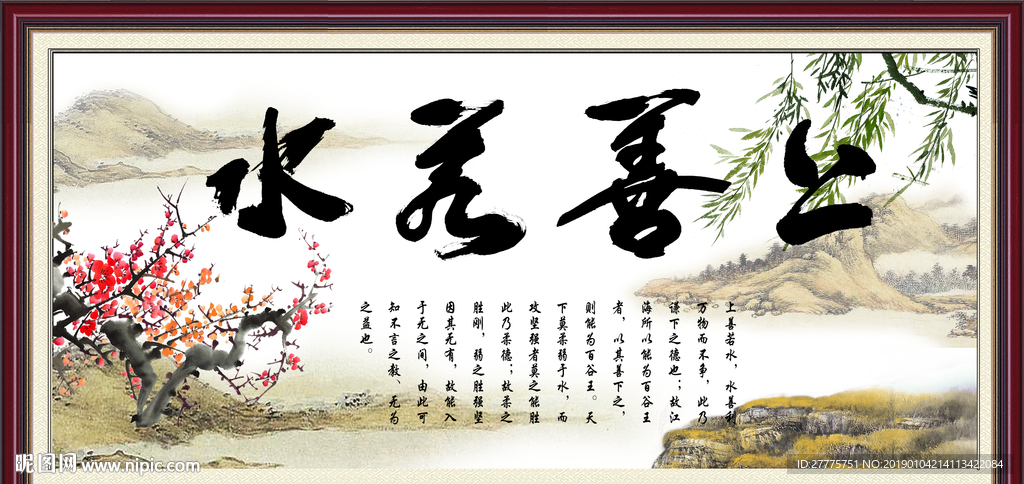 上善若水
上善若水，水善利
万物而不争，此乃
谦下之德也；故江
海所以能为百谷王
者，以其善下之，
则能为百谷王。天
下莫柔弱于水，而
攻坚强者莫之能胜
此乃柔德；故柔之
胜刚，弱之胜强坚
因其无有，故能入
于无之间，由此可
知不言之教、无为
之益也。
昵图网 www.nipic.com
ID:27775751 NO:20190104214113422084